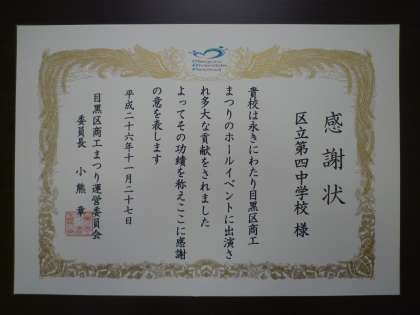 感謝状
区立第四中学校 様
貴校は永きにわたり目黒区商工
まつりのホールイベントに出演さ
れ多大な貢献をされました
よってその功績を称えここに感謝
の意を表します
平成二十六年十一月二十七日
目黒区商工まつり運営委員会
委員長 小熊 章